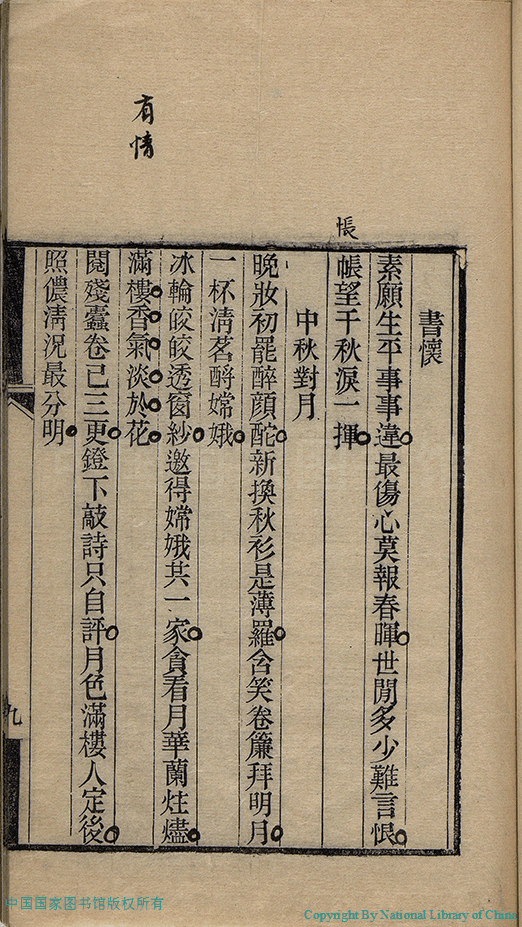 有情
悵
書懷
素願生平事事違最傷心莫報春暉世閒多少難言恨
帳望千秋淚一揮
中秋對月
晚妝初罷醉顔酡新換秋衫是薄羅含笑卷簾拜明月
一杯淸茗酹嫦娥
冰輪皎皎透窗紗邀得嫦娥共一家貪看月華蘭炷燼
滿樓香氣淡於花
閱殘蠹卷已三更鐙下敲詩只自評月色滿樓人定後
照儂淸況最分明
九
中国国家图书馆版权所有
Copyright By National Library of China